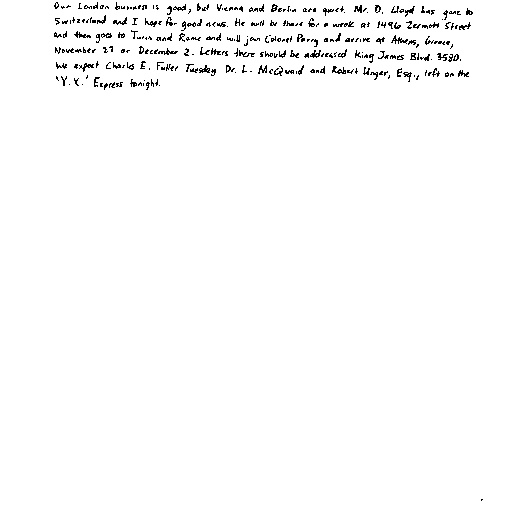 Our London business is good, but Vienna and Berlin are quiet. Mr. D. Lloyd has gone to
Switzerland and I hope for good news. He will be there for a week at 1496 Zermott Street
and then goes to Turin and Rome and will join Colonel Parry and arrive at Athens, Greece,
November 27 or December 2. Letters there should be addressed King James Blvd. 3580.
We expect Charles E. Fuller Tuesday. Dr. L. McQuaid and Robert Unger, Esq., left on the
"Y.X." Express tonight.